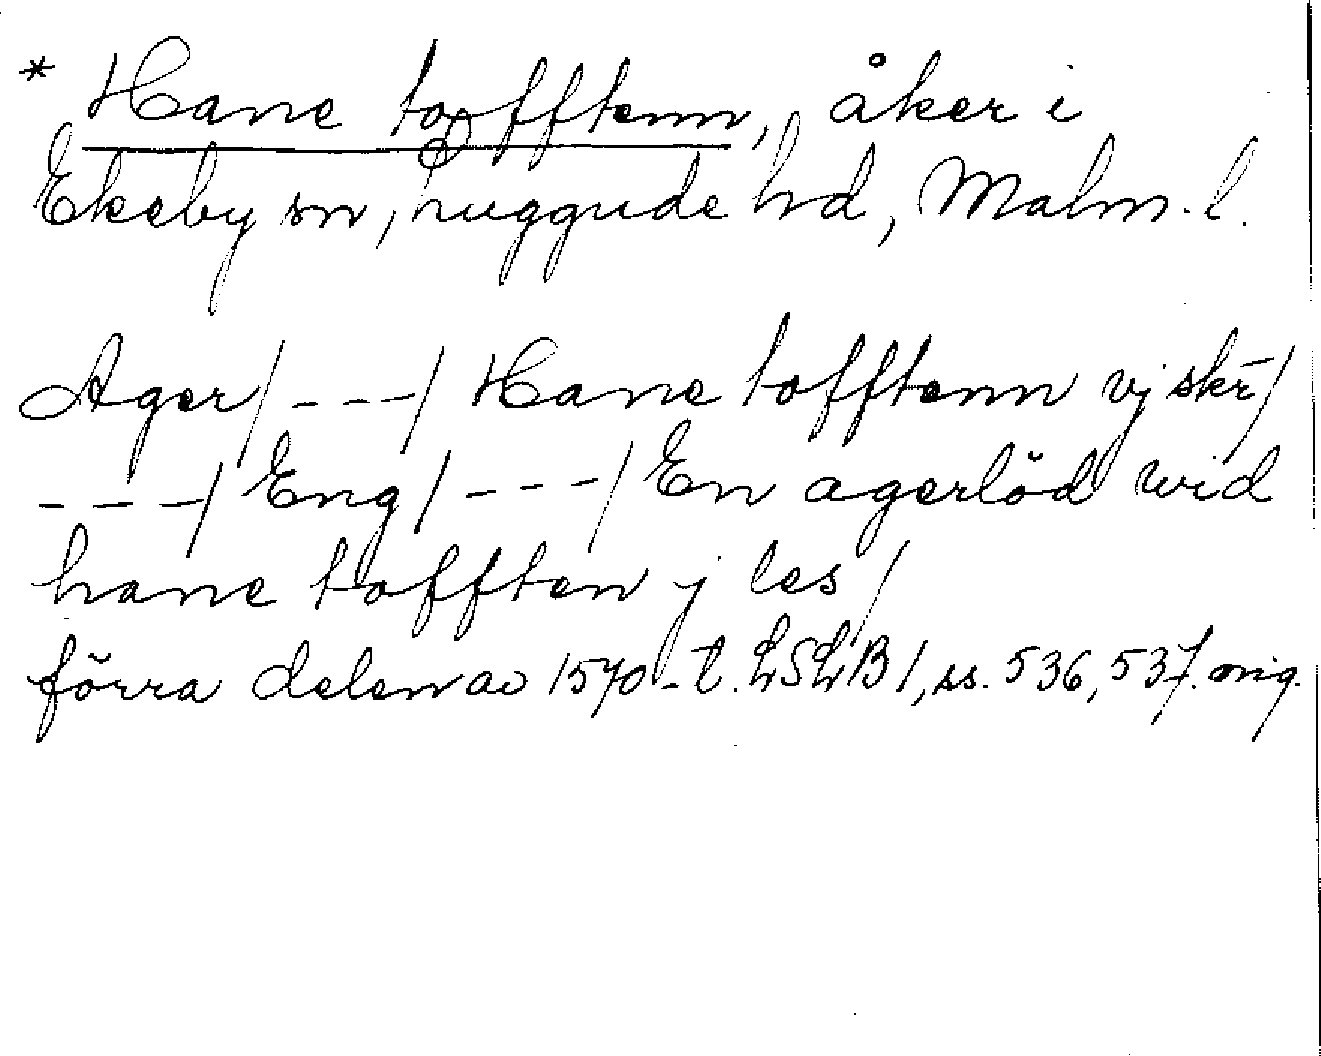 * Hane tofftenn, åker i
Ekeby sn, Luggude hd, Malm. l.
Ager / --- / Hane tofftenn vj skr̄ /
--- / Eng / --- / En agerlöd wid
hane tofften j les /
förra delen av 1570-t. LSLB 1, ss. 536, 537. orig.